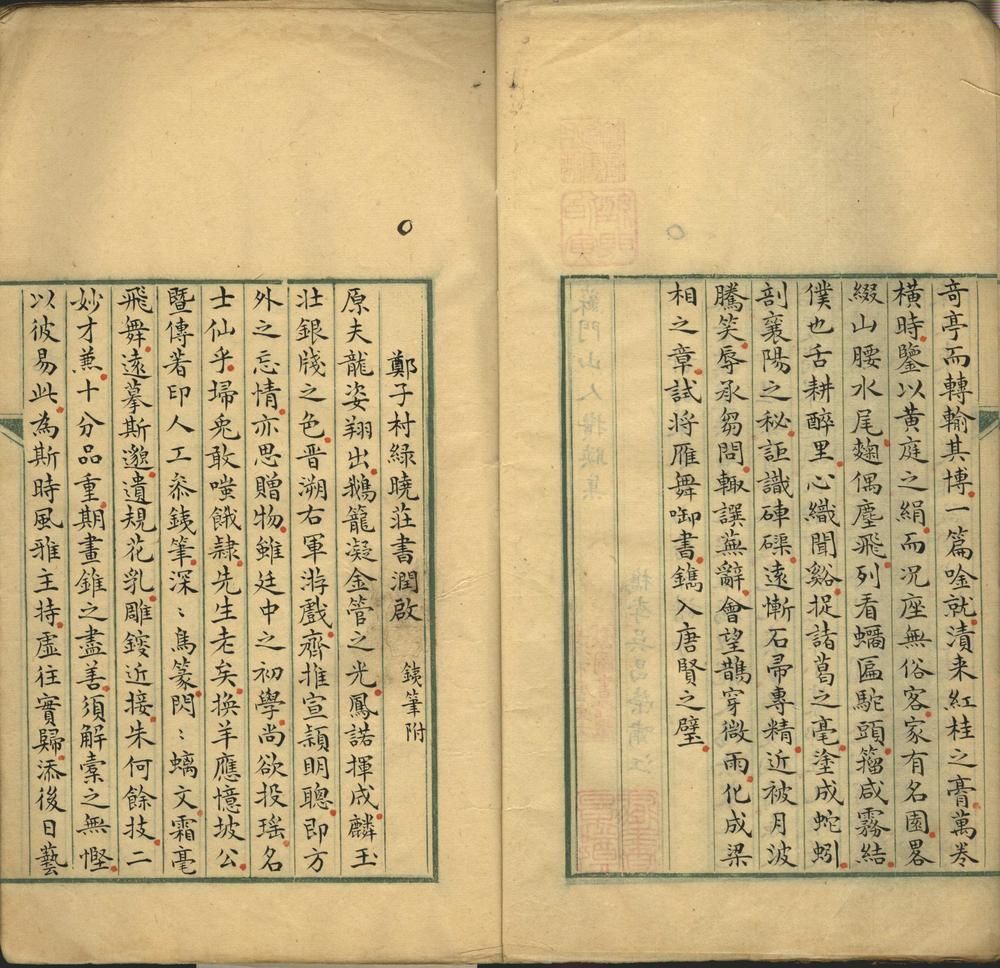 奇亭而轉輸其博一篇唫就漬来紅桂之膏萬卷
橫時鑒以黄庭之絹而况座無俗客家有名園畧
綴山腰水尾麹偶塵飛列看蠣匾駝頭籕咸霧結
僕也舌耕醉里心織聞谿捉諸葛之毫塗成蛇蚓
剖襄陽之秘詎識砗磲遠慚石帚專精近被月波
騰笑辱承芻問輙譔蕪辭會望鵲穿微雨化成梁
相之章試將雁舞啣書鐫入唐賢之壁
鄭子村綠曉莊書潤啟 銕筆附
原夫龍姿翔出鵝籠凝金管之光鳳諾揮成麟玉
壮銀牋之色晋溯右軍游戲齊推宣穎明聰即方
外之忘情亦思贈物雖廷中之初學尚欲投瑶名
士仙乎埽兎敢嗤餓隷先生老矣换羊應憶坡公
暨傳著印人工叅銕筆深〻鳥篆閃〻螭文霜毫
飛舞遠摹斯邈遺規花乳雕鎪近接朱何餘技二
妙才兼十分品重期畫錐之盡善須解橐之無慳
以彼易此為斯時風雅主持虚往實歸添後日藝